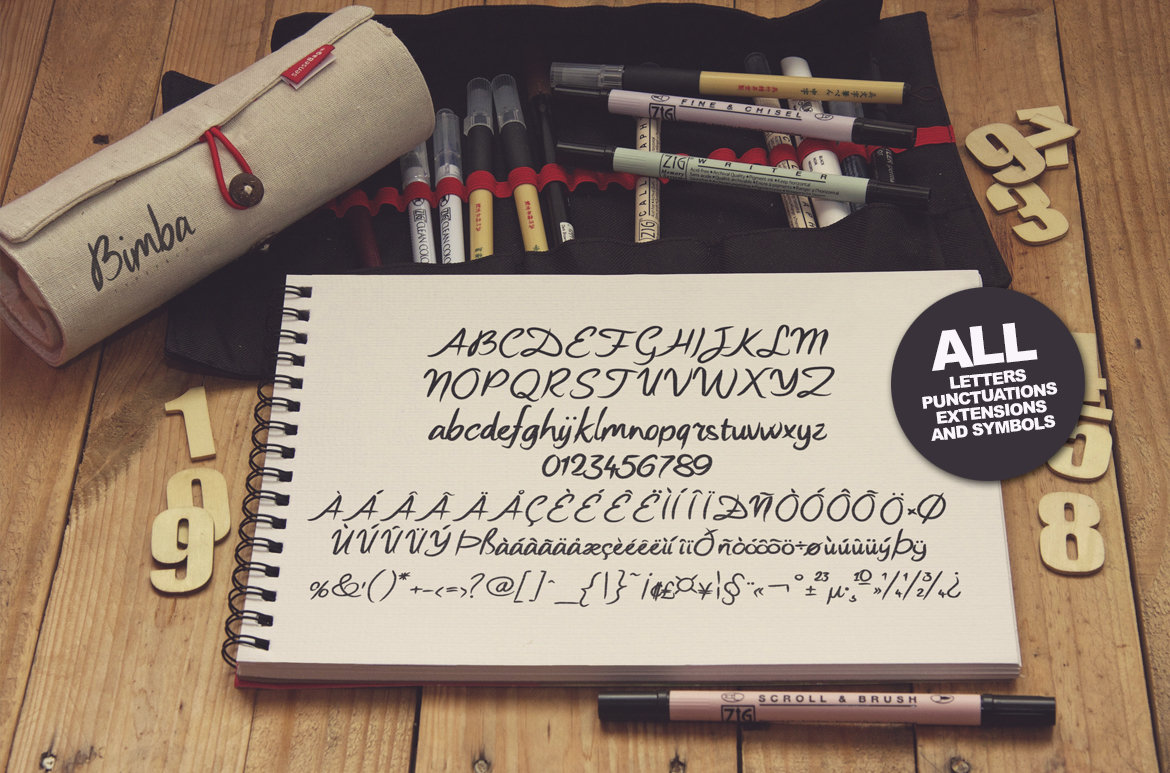 senseBag
Bimba
FINE & CHISEL
ZIG
ZIG
WRITER
CALLIGRAPH
CLEAN COLO
CLEAN COLO
ABCDEFGHIJKLM
NOPQRSTUVWXYZ
abcdefghijklmnopqrstuvwxyz
0123456789
ÀÁÂÃÄÅÇÈÉÊËÌÍÎÏÐÑÒÓÔÕÖ×Ø
ÙÚÛÜÝÞßàáâãäåæçèéêëìíîïÐñòóôõö÷øùúûüýþÿ
%&'()*+-<=>?@[]^_{|}~¡¢£¤¥¦§¨«¬°±²³µ·¸¹º»¼½¾¿
ALL
LETTERS
PUNCTUATIONS
EXTENSIONS
AND SYMBOLS
1
9
8
SCROLL & BRUSH
ZIG